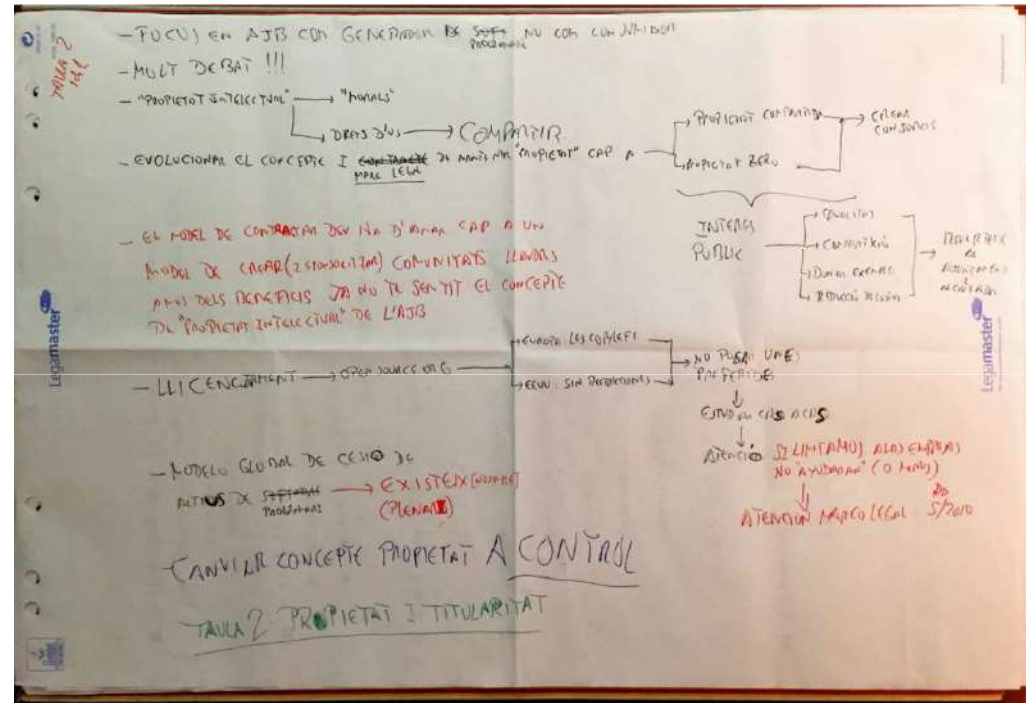 TAULA 2
- FOCUS EN AJB COM GENERADOR DE SOFT PROGRAMARI NO COM CONSUMIDOR
- MOLT DEBAT !!!
- "PROPIETAT INTELECTUAL" → "MORALS"
→ DRETS D'US → COMPARTIR
- EVOLUCIONAR EL CONCEPTE I CONTRACTE DE "PROPIETAT" CAP A
MARC LEGAL
→ PROPIETAT COMPARTIDA → CREAR CONSORCIS
→ PROPIETAT ZERO
INTERES PUBLIC
→ QUALITAT
→ COMPETICIÓ
→ DONAR EXEMPLE
→ REDUCCIÓ DE
- EL MODEL DE CONTRACTAR DEV HA D'ANAR CAP A UN
MODEL DE CREAR (I ESPONSORITZAR) COMUNITATS LLAVORS
DELS BENEFICIS JA NO TE SENTIT EL CONCEPTE
DE "PROPIETAT INTELECTUAL" DE L'AJB
- LLICENCIAMENT → OPEN SOURCE ORG
→ EUROPA: LES COPYLEFT
→ EEUU: SIN
→ NO POSAR UNES PREFERIDES
↓
ESTUDIAR CAS A CAS
↓
ATENCIÓ SI LIMITAMOS A LAS EMPRESAS
NO "AYUDARAN" (O MENOS)
↓
ATENCION MARCO LEGAL RD 5/2010
- MODELO GLOBAL DE CESIÓ DE
ACTIUS DE SOFTWARE → EXISTEIX
PROGRAMARI
(PLENARI)
CANVIAR CONCEPTE PROPIETAT A CONTROL
TAULA 2 PROPIETAT I TITULARITAT
Legamaster
Legamaster